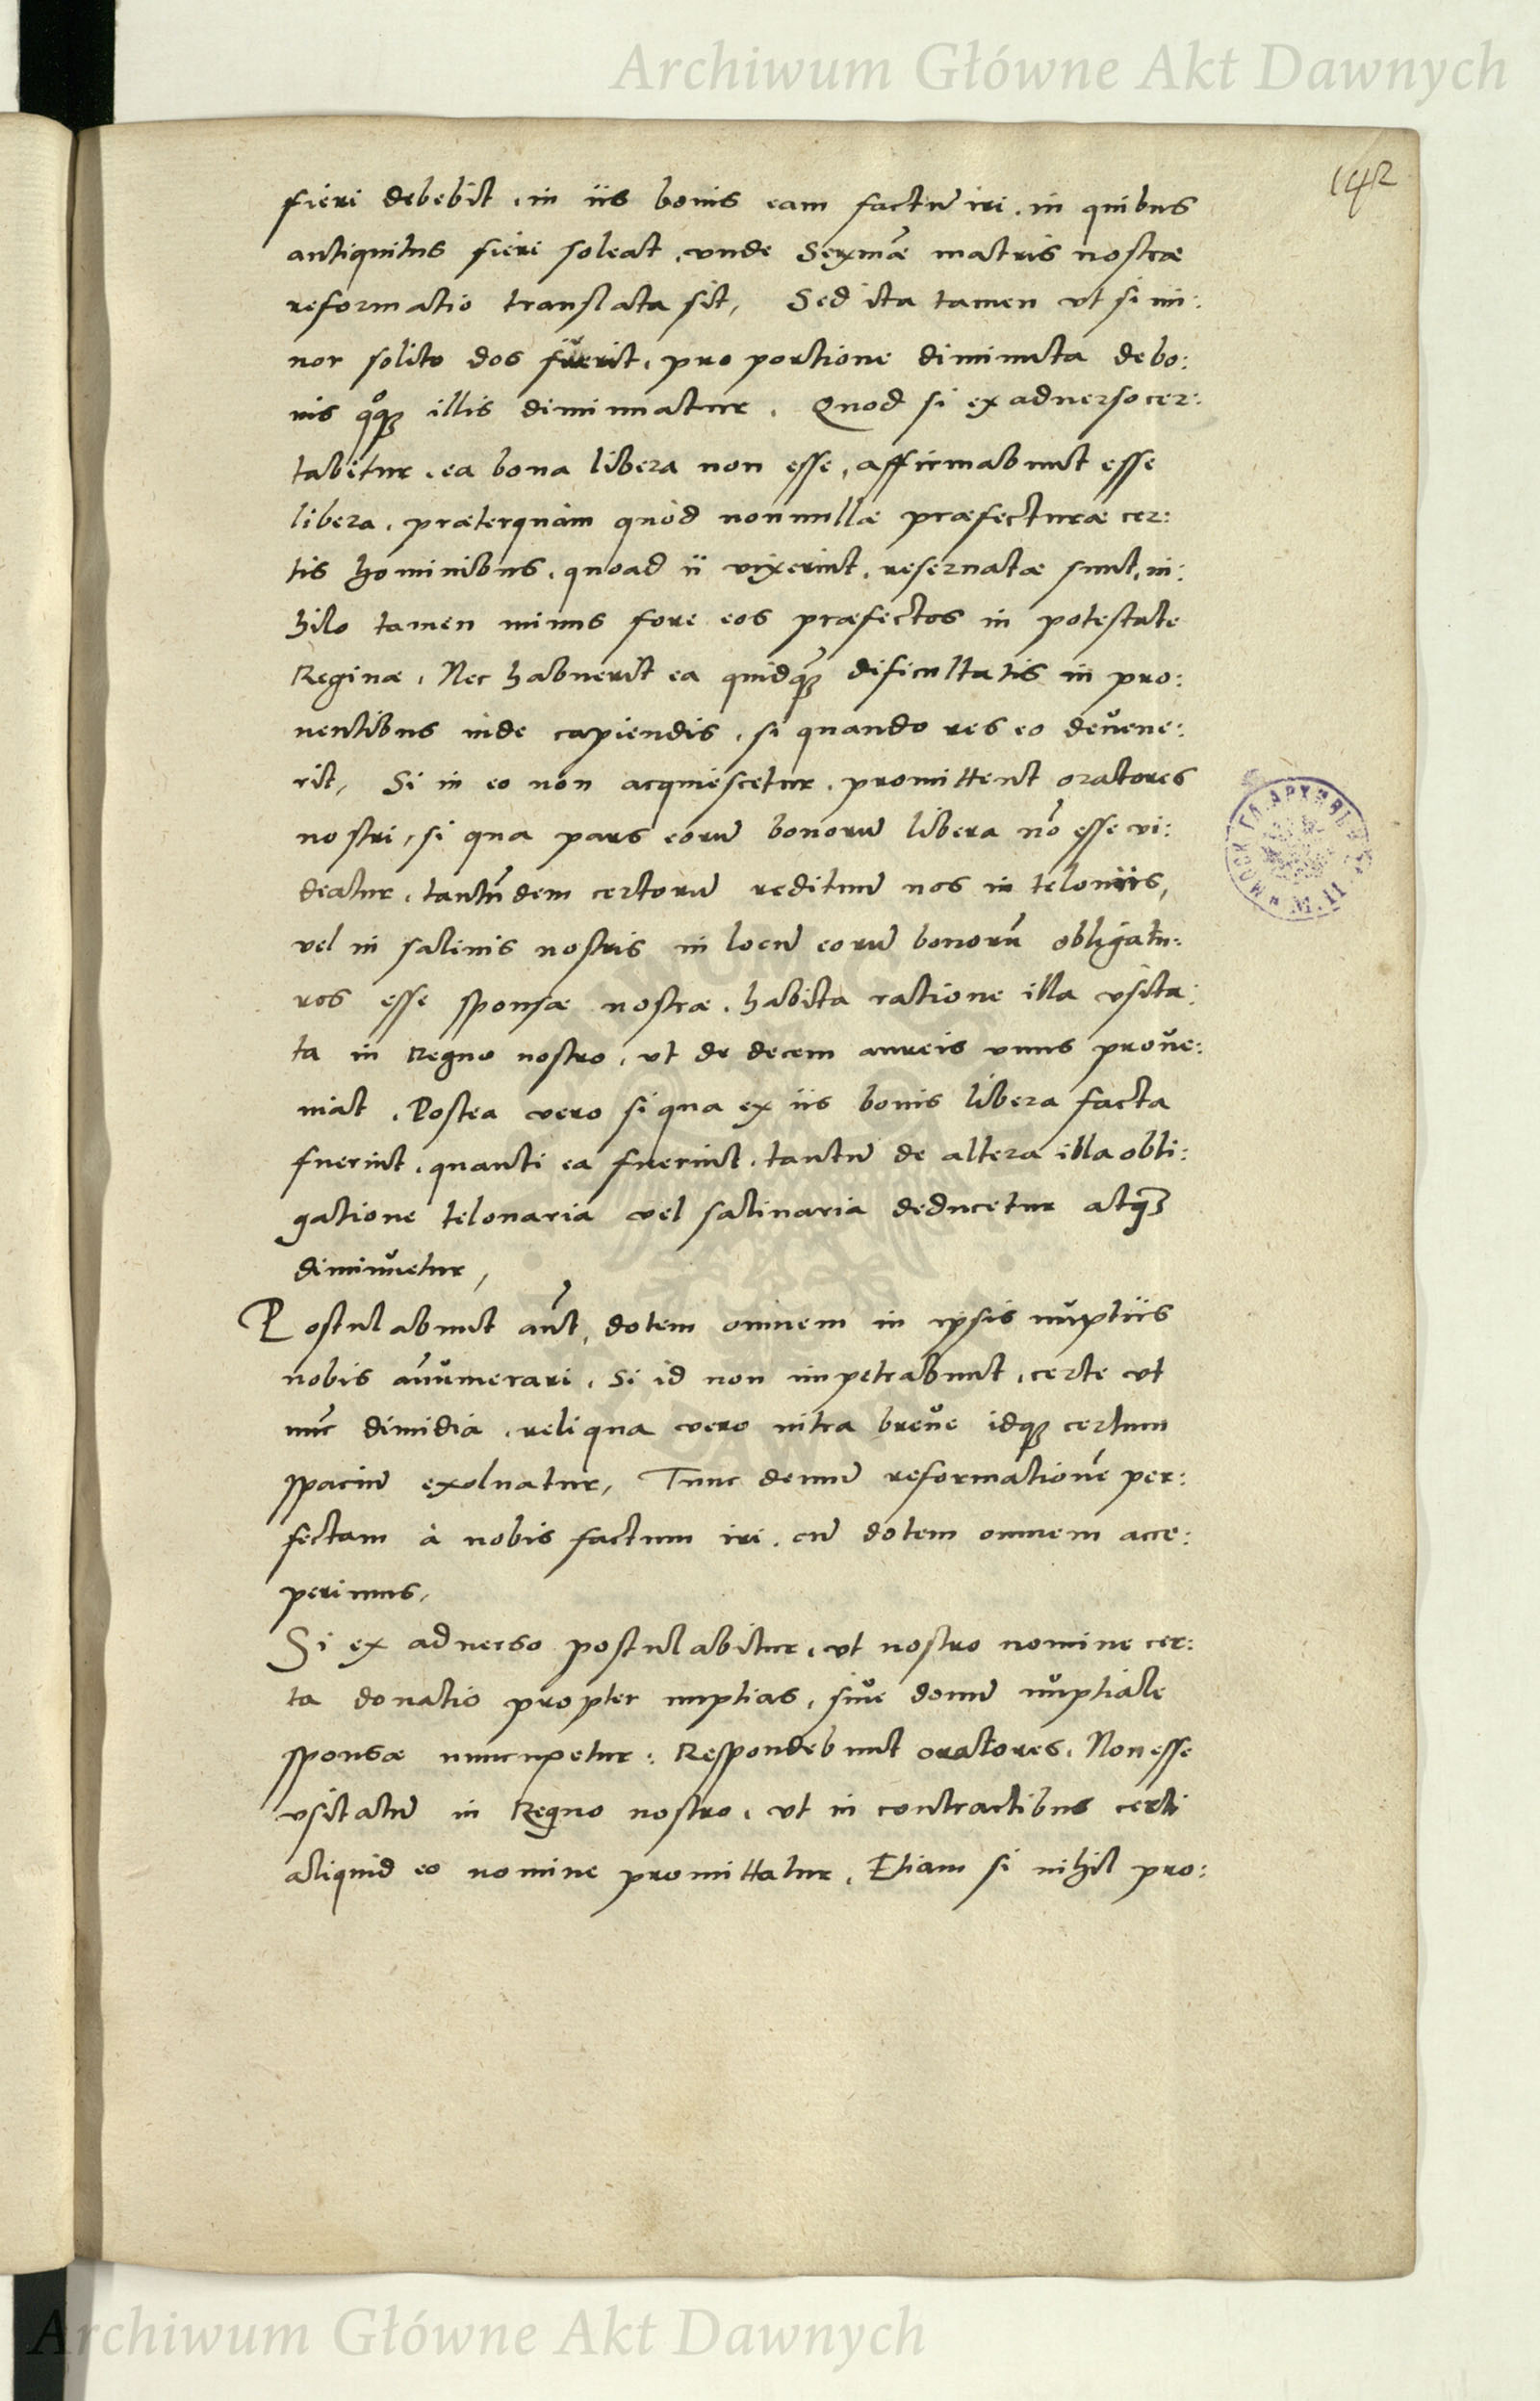 Archiwum Główne Akt Dawnych
142
fieri debebit, in iis bonis eam factū iri, in quibus
antiquitus fieri soleat, unde Serṁae matris nostrae
reformatio translata sit, Sed ita tamen ut si mi:
nor solito dos fuerit, pro portione diminuta de bo:
nis qͦqꝫ illis diminuatur. Quod si ex adverso cer:
tabitur, ea bona libera non esse, affirmabunt esse
libera, praeterquàm quòd nonnullae praefecturae cer:
tis hominibus, quoad ii vixerint, reservatae sunt, ni:
hilo tamen minus fore eos praefectos in potestate
Reginae, Nec habuerit ea quidqꝫ dificultatis in pro:
ventibus inde capiendis, si quando res eo devene:
rit, Si in eo non acquiescetur, promittent oratores
nostri, si qua pars eorū bonorū libera nō esse vi:
deatur, tantūdem certorū redituū nos in teloniis,
vel in salinis nostris in locū eorū bonorū obligatu:
ros esse sponsae nostrae, habita ratione illa usita:
ta in Regno nostro, ut de decem aureis unus prove:
niat. Postea vero si qua ex iis bonis libera facta
fuerint, quanti ea fuerint, tantū de altera illa obli:
gatione telonaria vel salinaria deducetur atqꝫ
diminuetur,
Postulabunt aūt, dotem omnem in ipsis nuptiis
nobis an̄umerari, Si id non impetrabunt, certe ut
nūc dimidia, reliqua vero intra breve idqꝫ certum
spaciū exolvatur, Tunc demū reformationē per:
fectam à nobis factum iri, cū dotem omnem acce:
perimus,
Si ex adverso postulabitur, ut nostro nomine cer:
ta donatio propter nuptias, sive donū nuptiale
sponsae nuncupetur: Respondebunt oratores, Non esse
usitatū in Regno nostro, ut in contractibus certi
aliquid eo nomine promittatur, Etiam si nihil pro:
Archiwum Główne Akt Dawnych